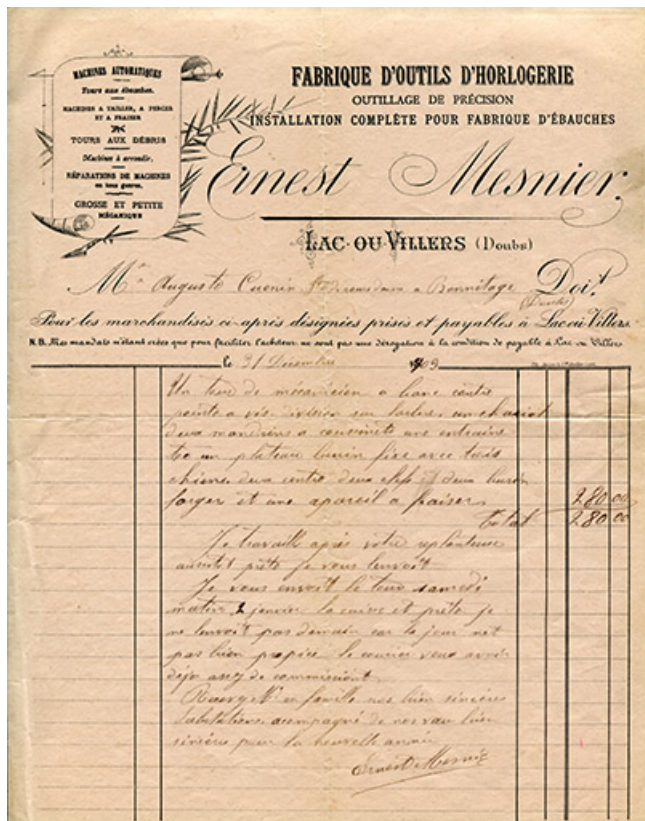 MACHINES AUTOMATIQUES
Tours aux ébauches.
MACHINES A TAILLER, A PERCER
ET A FRAISER
TOURS AUX DÉBRIS
Machines à arrondir.
RÉPARATIONS DE MACHINES
en tous genres.
GROSSE ET PETITE
MÉCANIQUE
FABRIQUE D'OUTILS D'HORLOGERIE
OUTILLAGE DE PRÉCISION
INSTALLATION COMPLÈTE POUR FABRIQUE D'ÉBAUCHES
Ernest Mesnier,
LAC-OU-VILLERS (Doubs)
M Auguste Cuenin a Bonnétage Doit
(Doubs)
Pour les marchandises ci-après désignées prises et payables à Lac ou Villers.
N.B. Mes mandats n'étant créés que pour faciliter l'acheteur ne sont pas une dérogation à la condition de payable à Lac ou Villers
le 31 Décembre 1909
Un tour de mécanicien a banc contre
pointe a vis division sur un chariot
deux mandrins a coussinets une
un plateau burin fixe avec trois
deux centre deux clefs et deux burin
forger et une apareil a fraiser 280.00
total 280.00
Je travaille après votre
aussitot prête je vous lenvoit
Je vous envoit le tour samedi
matin 2 janvier la caisse et prête je
ne lenvoit pas demain car le jour net
pas bien propice le courier vous avoir
déja assez de commissiont
Recevez Mr en famille nos bien sincères
Salutations acompagné de nos vœu bien
sincères pour la nouvelle année
Ernest Mesnier